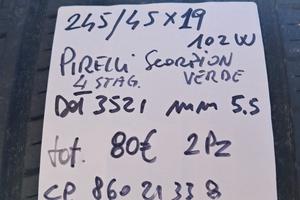 245/45x19
102W
PIRELLI SCORPION
4 STAG. VERDE
Dot 3521 mm 5.5
tot. 80€ 2Pz
CP 8602133 8